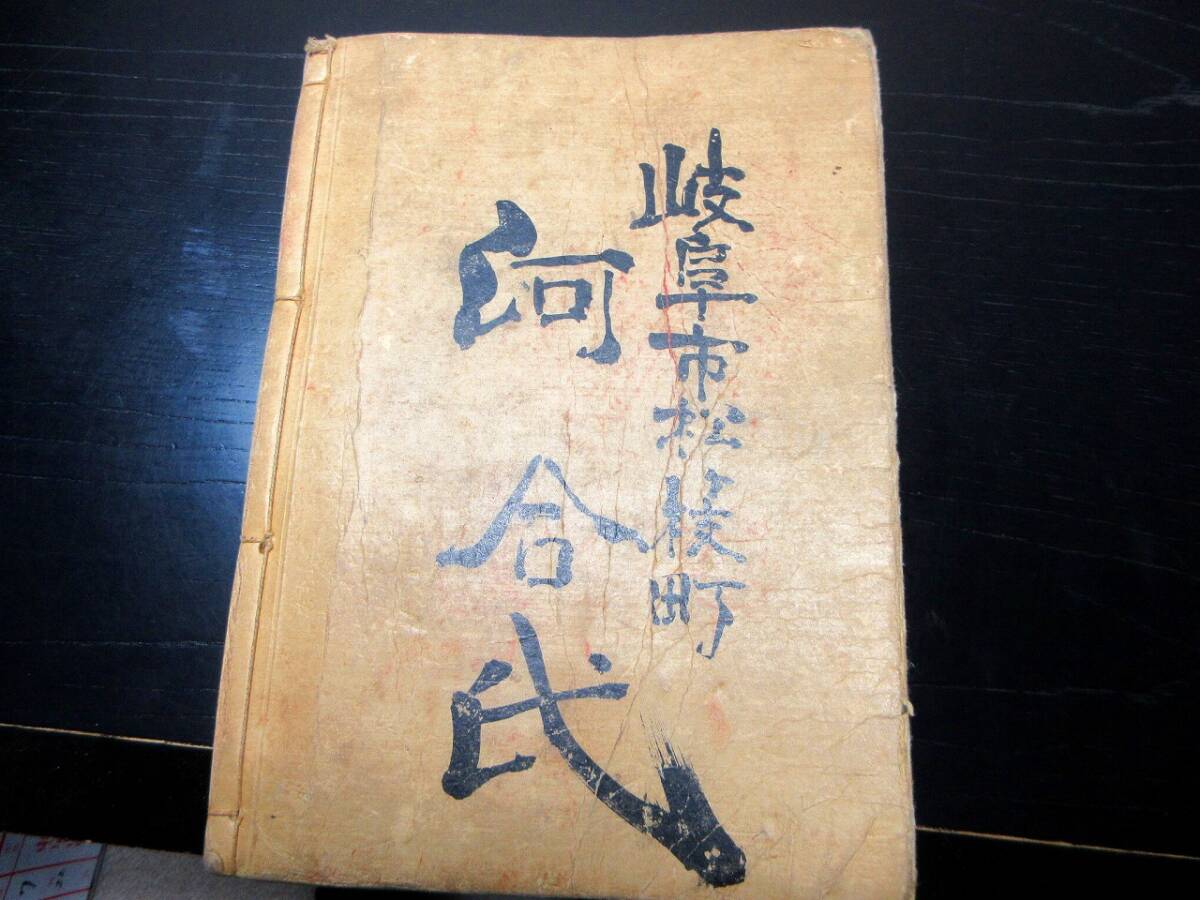 岐阜市松枝町
河合氏